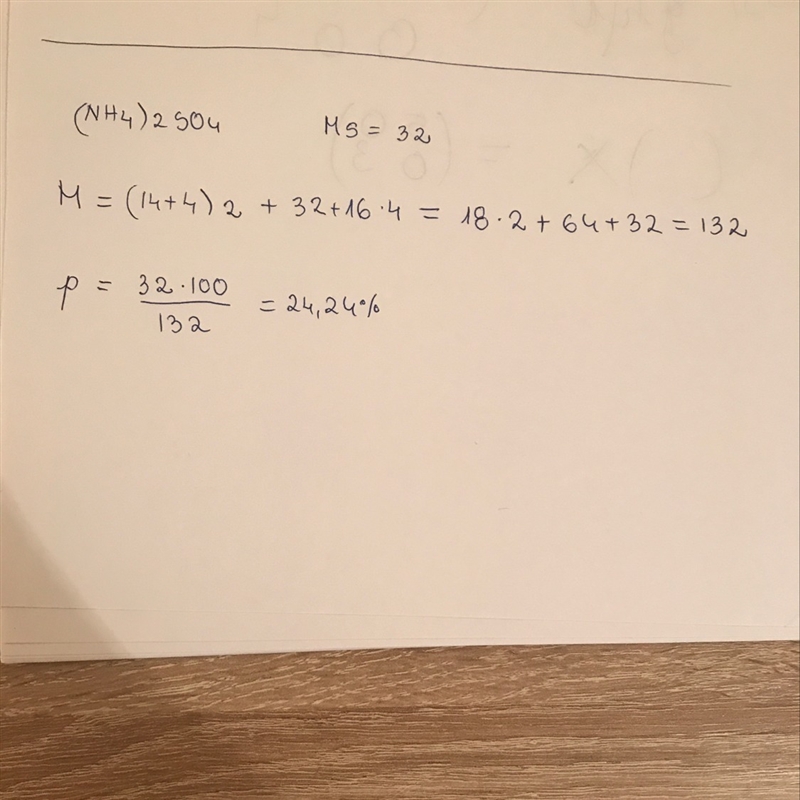 (NH4)2SO4 MS = 32
M = (14+4)2 + 32+16·4 = 18·2+64+32=132
p = 32·100/132 = 24,24%